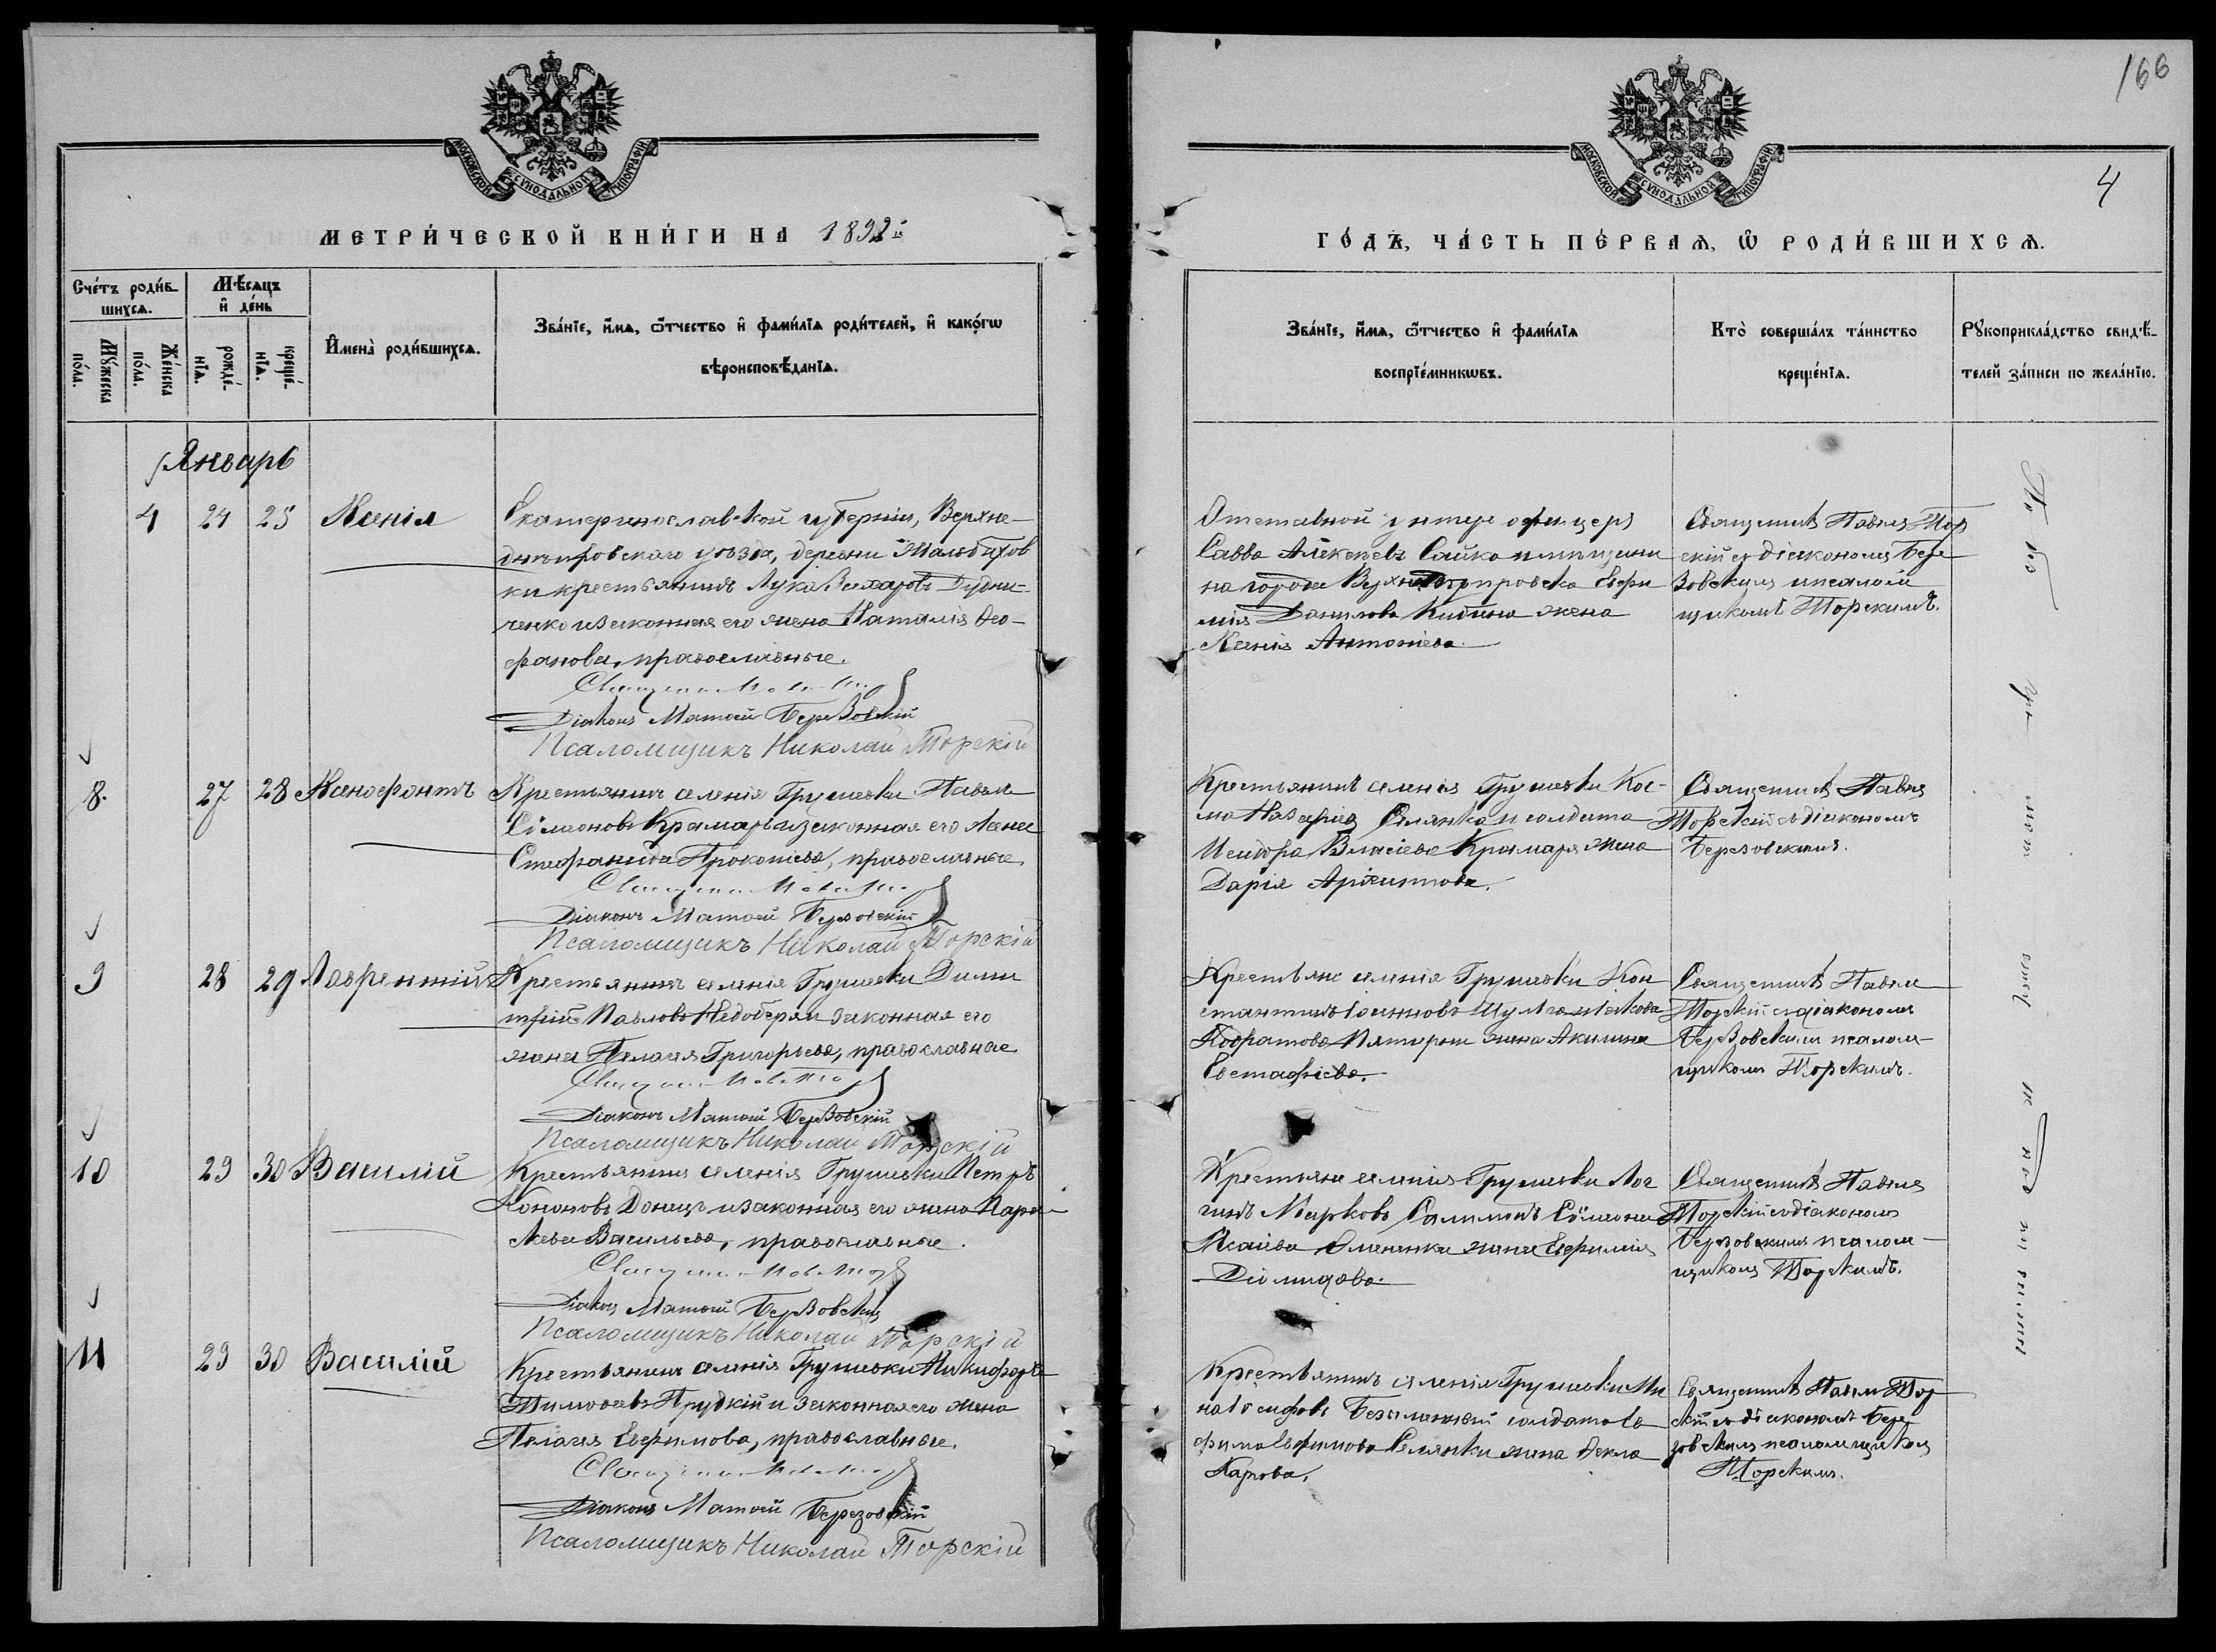 166
4
МОСКОВСКОЙ СѴНОДАЛЬНОЙ ТИПОГРАФІИ
МОСКОВСКОЙ СѴНОДАЛЬНОЙ ТИПОГРАФІИ
МЕТРИ́ЧЕСКОЙ КНИ́ГИ НА 1892й
ГО́ДЪ, ЧА́СТЬ ПЕ́РВАѦ, Ѽ РОДИ́ВШИХСѦ.
Сче́тъ роди́вшихсѧ.
Мѣ́сѧцъ и҆ де́нь
Мꙋ́жеска по́ла.
Же́нска по́ла.
рожде́нїѧ.
креще́нїѧ.
И҆мена̀ роди́вшихсѧ.
Зва́нїе, и҆́мѧ, ѻ҆́тчество и҆ фами́лїѧ роди́телей, и҆ како́гѡ
вѣроисповѣ́данїѧ.
Зва́нїе, и҆́мѧ, ѻ҆́тчество и҆ фами́лїѧ
воспрїе́мникѡвъ.
Кто̀ соверша́лъ та́инство
креще́нїѧ.
Рꙋкоприкла́дство свидѣ́-
телей за́писи по жела́нїю.
Январь
4 24 25 Ксенія
Екатеринославской губерніи, Верхне-
днѣпровскаго уѣзда, деревни
ки крестьянинъ Лука Дудни-
ченко и законная его жена Наталія Ѳео-
фанова, православные.
Діаконъ Матѳей Березовскій
Псаломщикъ Николай Торскій
Отставной унтеръ офицеръ
Савва Алексѣевъ Сайко и мѣщани
на города Верхнеднѣпровска Ефи
мія Данилова жена
Ксенія Антоніева.
Священникъ Павелъ Тор
скій съ діакономъ Бере
зовскимъ и псалом
щикомъ Торскимъ.
8. 27 28 Ксенофонтъ
Крестьянинъ селенія Грушевки Павелъ
Сѵмеоновъ Крамарь и законная его жена
Стефанида Прокопіева, православные.
Діаконъ Матѳей Березовскій
Псаломщикъ Николай Торскій
Крестьянинъ селенія Грушевки Кос-
ма Назаріевъ и солдата
Исидора Власіева Крамаря жена
Дарія
Священникъ Павелъ
Торскій съ діакономъ
Березовскимъ.
9 28 29 Лаврентій
Крестьянинъ селенія Грушевки Дими
трій Павловъ Недоберя и законная его
жена Пелагія Григорьева, православные
Діаконъ Матѳей Березовскій
Псаломщикъ Николай Торскій
Крестьяне селенія Грушевки Кон
стантинъ Іоанновъ Шульга и Іакова
Кодратова жена Акилина
Евстафіева.
Священникъ Павелъ
Торскій съ діакономъ
Березовскимъ псалом-
щикомъ Торскимъ.
10 29 30 Василій
Крестьянинъ селенія Грушевки Петръ
Кононовъ Донецъ и законная его жена Парас-
кева Васильева, православные.
Діаконъ Матѳей Березовскій
Псаломщикъ Николай Торскій
Крестьяне селенія Грушевки Лог
гинъ Марковъ и Сѵмеона
Исаіева жена Евфимія
Діомидова.
Священникъ Павелъ
Торскій съ діакономъ
Березовскимъ псалом-
щикомъ Торскимъ.
11 29 30 Василій
Крестьянинъ селенія Грушевки Никифоръ
Тимоѳеевъ Прудкій и законная его жена
Пелагія Евфимова, православные.
Діаконъ Матѳей Березовскій
Псаломщикъ Николай Торскій
Крестьянинъ селенія Грушевки Ми
на Іосифовъ Безыменный и солдата Ев
фима Евфимова жена Ѳекла
Карпова.
Священникъ Павелъ Тор
скій съ діакономъ Бере
зовскимъ псаломщикомъ
Торскимъ.